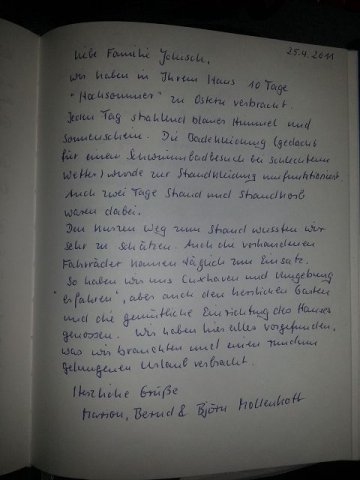 25.4.2011
Liebe Familie Jokusch,
wir haben in Ihrem Haus 10 Tage
"Hochsommer" zu Ostern verbracht.
Jeden Tag strahlend blauer Himmel und
Sonnenschein. Die Badekleidung (gedacht
für einen Schwimmbadbesuch bei schlechtem
Wetter) wurde zur Strandkleidung umfunktioniert
Auch zwei Tage Strand und Strandkorb
waren dabei.
Den kurzen Weg zum Strand wussten wir
sehr zu schätzen. Auch die vorhandenen
Fahrräder kamen täglich zum Einsatz.
So haben wir uns Cuxhaven und Umgebung
"erfahren", aber auch den herrlichen Garten
und die gemütliche Einrichtung des Hauses
genossen. Wir haben hier alles vorgefunden,
was wir brauchten und einen rundum
gelungenen Urlaub verbracht.
Herzliche Grüße
Marion, Bernd & Björn Mollenhott